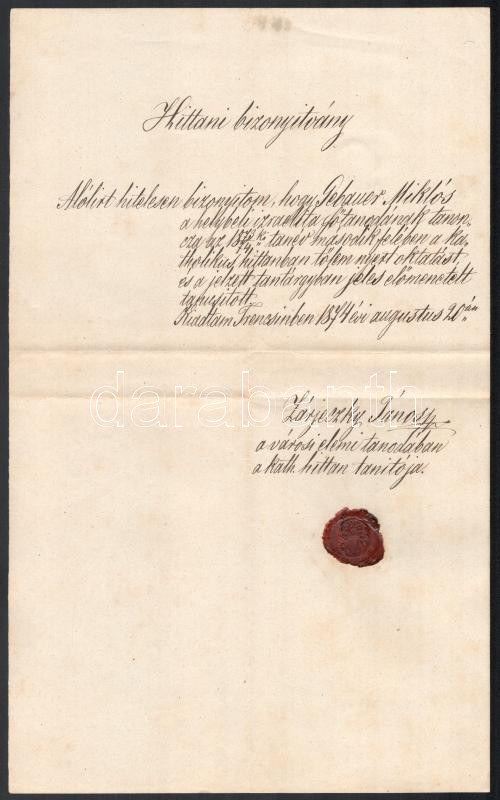 Hittani bizonyitvány
Alólirt hitelesen bizonyitom, hogy Gebauer Miklós
a helybeli izraelita főtanodának tanon-
cza az 1873/4ik tanév második felében a ka-
tholikus hittanban tőlem nyert oktatást,
és a jelzett tantárgyban jeles előmenetelt
tanusitott.
Kiadtam Trencsinben 1874 évi augustus 20án
darabanth
Zárjeczky János
a városi elemi tanodában
a kath. hittan tanitója.